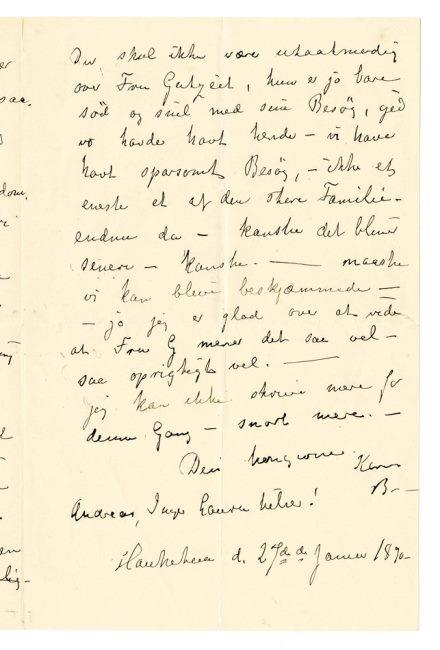 Du skal ikke være utaalmodig
over Fru Gutzeit, hun er jo bare
sød og snil med sine Besøg, gid
vo havde havt hende – vi have
havt sparsomt Besøg, – ikke et
eneste et af den store Familie –
endnu da – kanske det bliver
senere – kanske. — maaske
vi kan blive beskjæmmede –
– jo jeg er glad over at vide
at Fru G mener det saa vel –
saa oprigtigt vel. —
jeg kan ikke skrive mere for
denne Gang – snart mere. –
Din hengivne
B–
Andreas, Inga Laura hilser!
d. 27de Januar 1890–